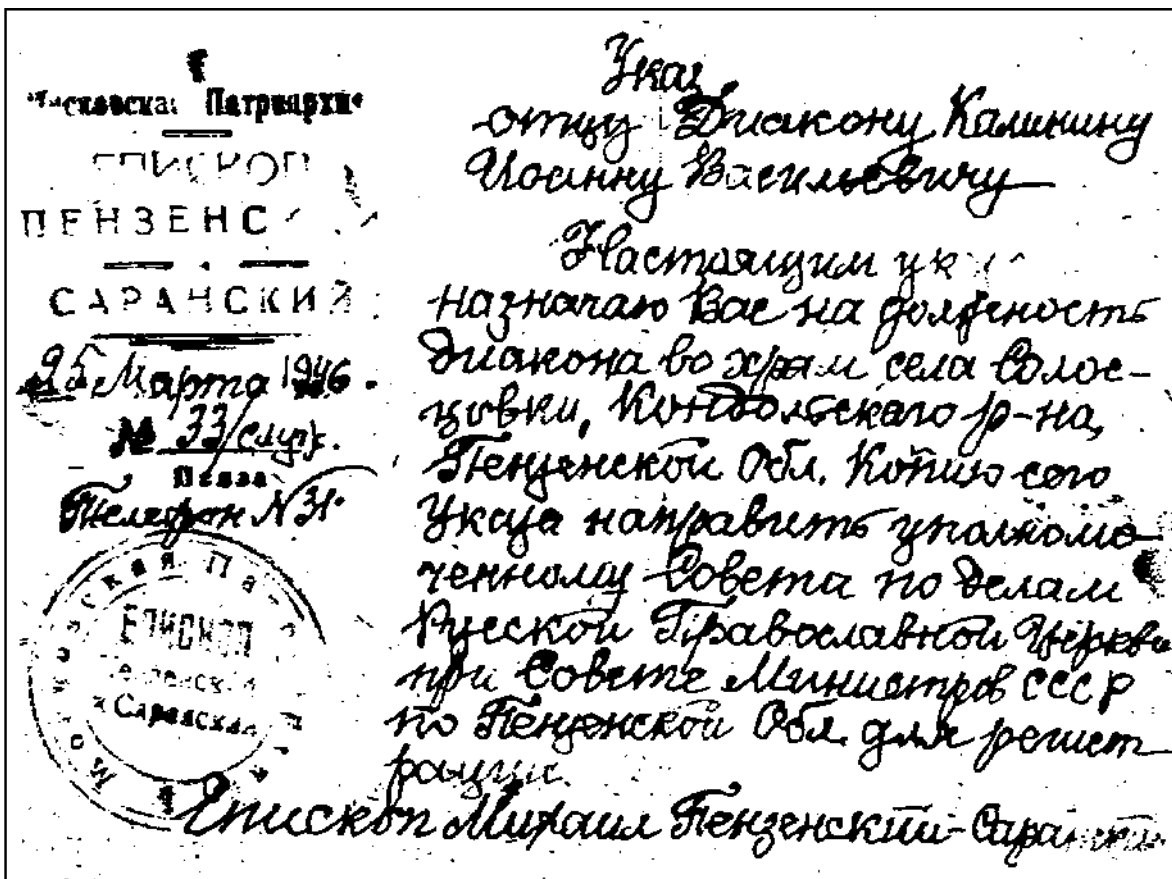 Московская Патриархия
ЕПИСКОП
ПЕНЗЕНС
САРАНСКИЙ
25 Марта 1946.
№ 33/служ.
Пенза
Телефон N 31.
Московская Пат
ЕПИСКОП
и Саранский
Указ
отцу Диакону Калинину
Иоанну Васильевичу
Настоящим ук
назначаю Вас на должность
диакона во храм села Солос-
цовки, Кондольскаго р-на,
Пензенской Обл. Копию сего
Указа направить уполномо-
ченному Совета по делам
Русской Православной Церкви
при Совете Министров СССР
по Пензенской Обл. для регист
рации.
Епископ Михаил Пензенский-Саранский